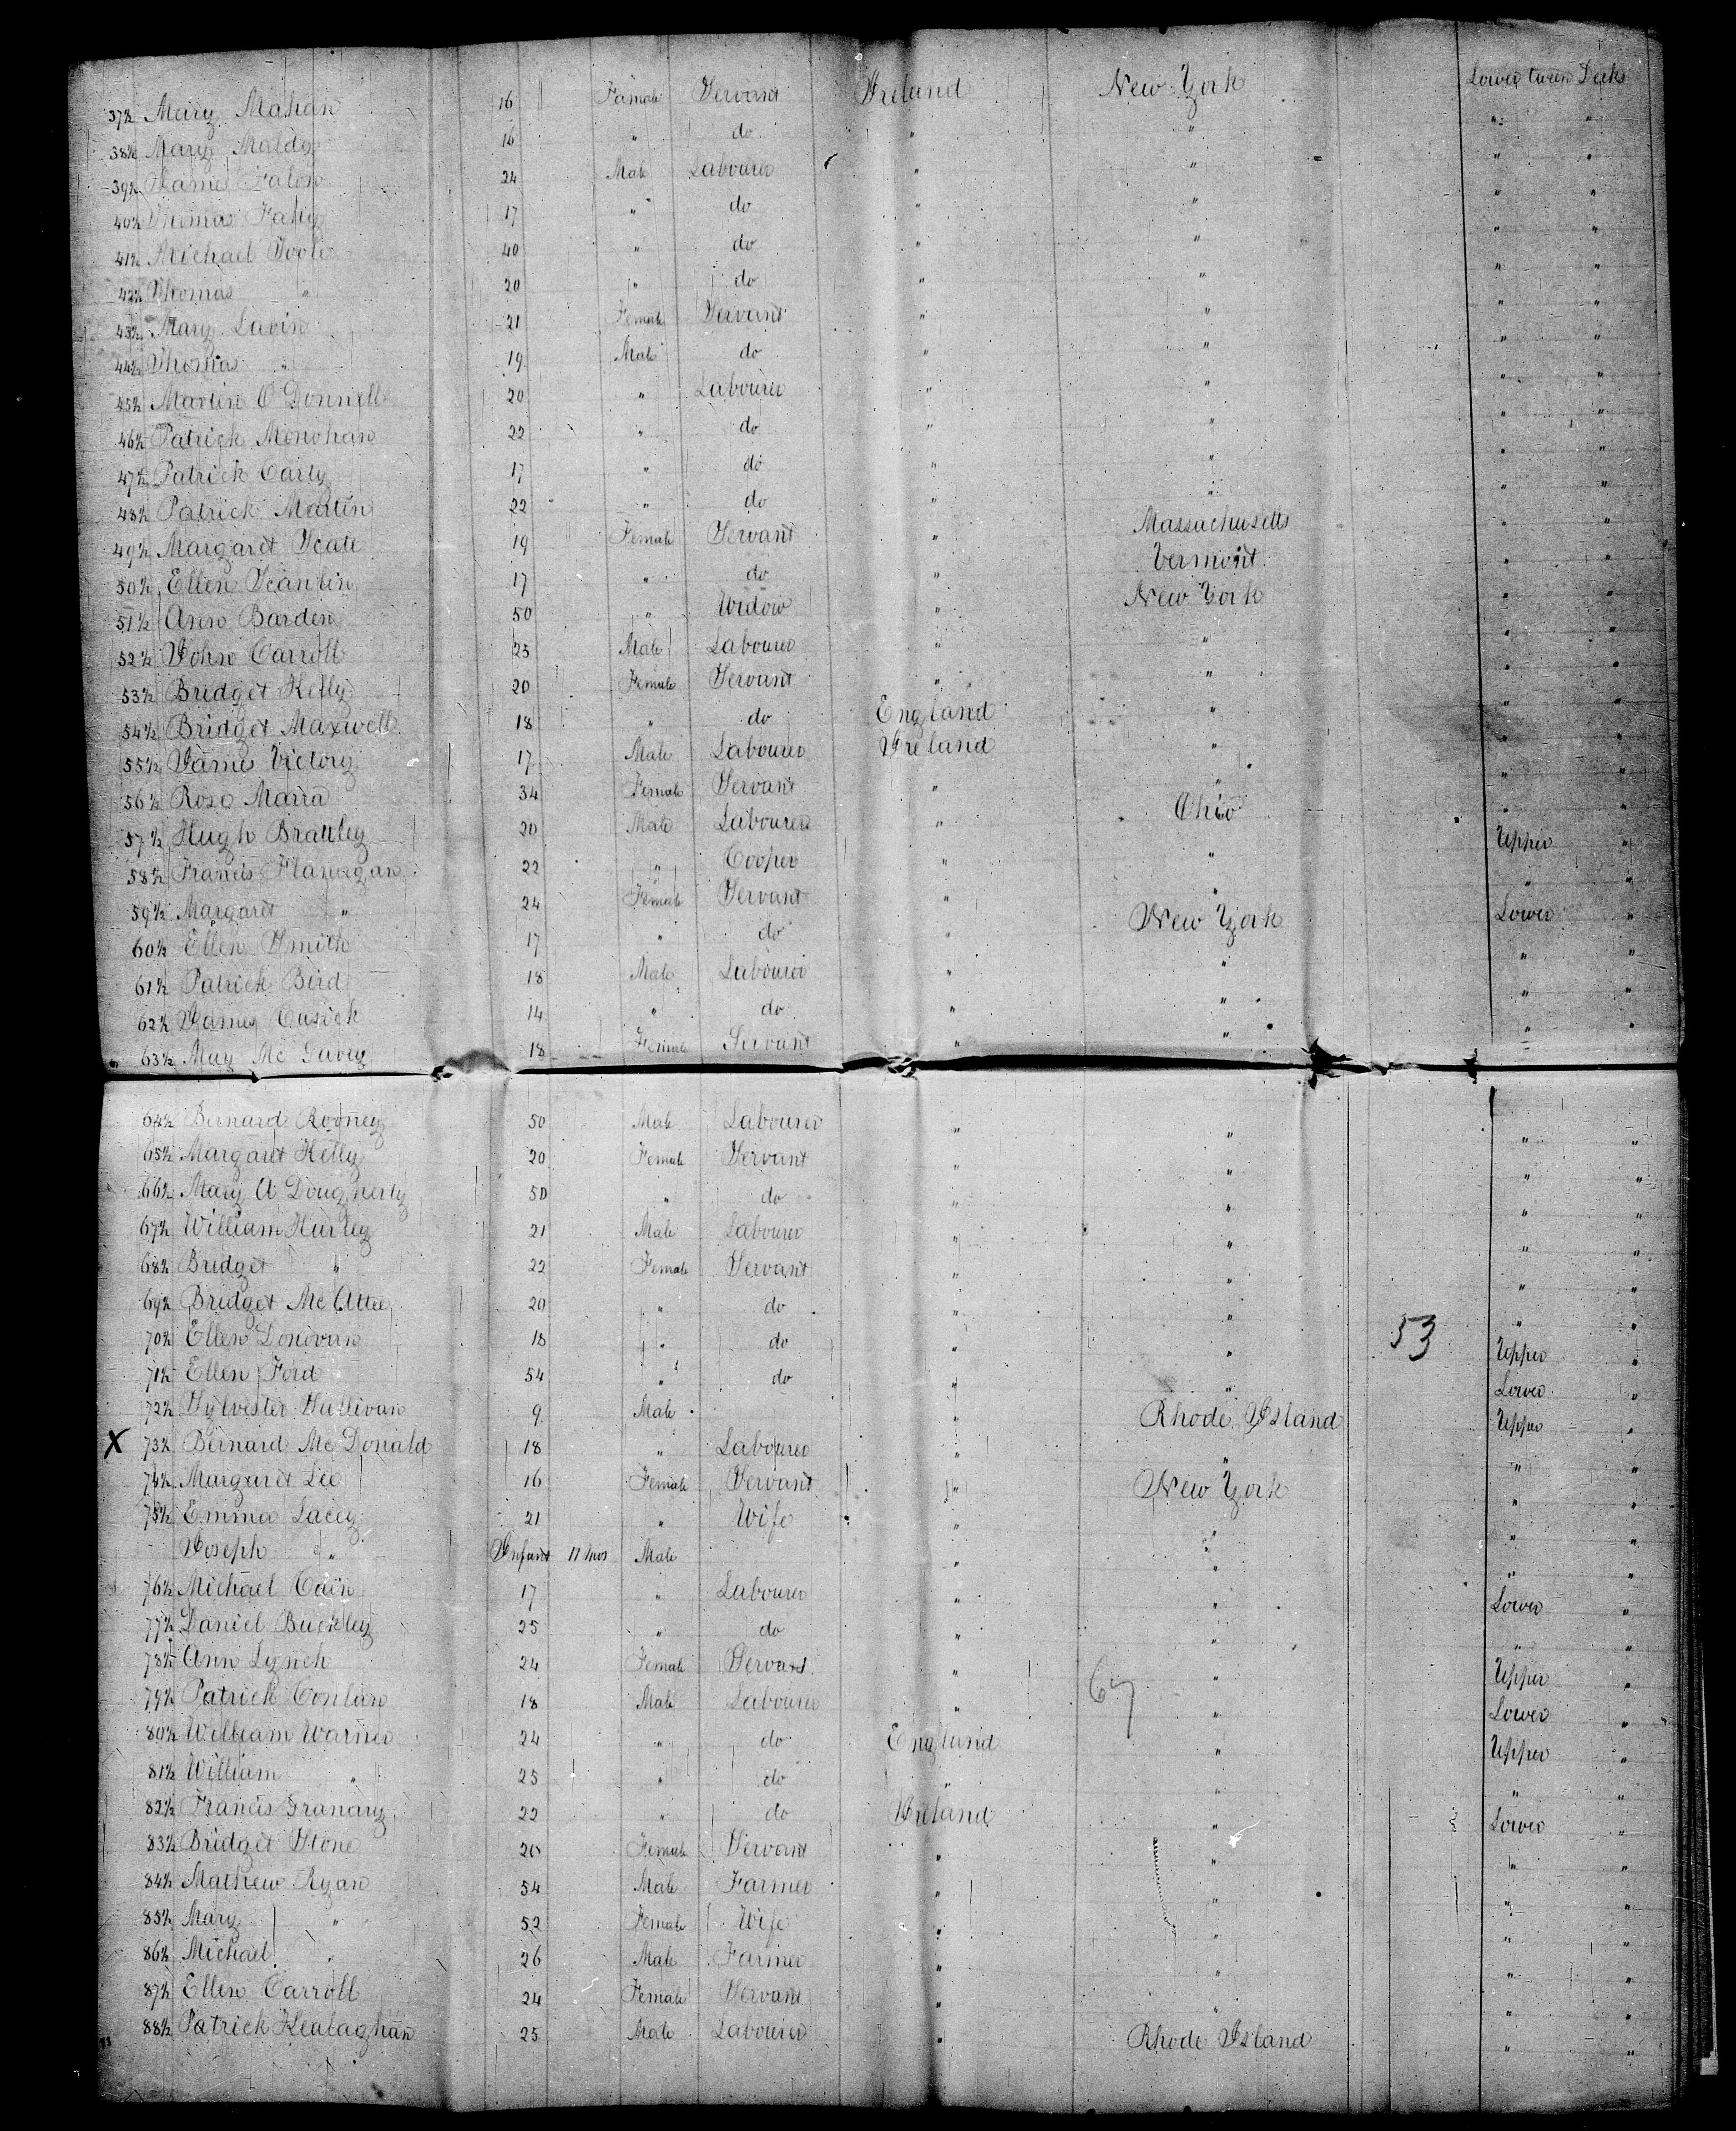 37½ Mary Mahan 16 Female Servant Ireland New York Lower tween Decks
38½ Mary Maldy 16 " do " " " "
39½ James Falon 24 Male Labourer " " " "
40½ Thomas Fahy 17 " do " " " "
41½ Michael Toole 40 " do " " " "
42½ Thomas " 20 " do " " " "
43½ Mary Lavin 21 Female Servant " " " "
44½ Thomas " 19 Male do " " " "
45½ Martin O Donnell 20 " Labourer " " " "
46½ Patrick Monohan 22 " do " " " "
47½ Patrick Carty 17 " do " " " "
48½ Patrick Martin 22 " do " " " "
49½ Margaret 19 Female Servant " Massachusetts " "
50½ Ellen Scanlin 17 " do " Vermont " "
51½ Ann Barden 50 " Widow " New York " "
52½ John Carroll 23 Male Labourer " " " "
53½ Bridget Kelly 20 Female Servant " " " "
54½ Bridget Maxwell 18 " do England " " "
55½ James Victory 17 Male Labourer Ireland " " "
56½ Rose Marra 34 Female Servant " " " "
57½ Hugh Brattley 20 Male Labourer " Ohio " "
58½ Francis Flanagan 22 " Cooper " " Upper "
59½ Margaret " 24 Female Servant " " " "
60½ Ellen Smith 17 " do " New York Lower "
61½ Patrick Bird 18 Male Labourer " " " "
62½ James Cusick 14 " do " " " "
63½ May Mc Garvey 18 Female Servant " " " "
64½ Bernard Rooney 50 Male Labourer " " " "
65½ Margaret Kelly 20 Female Servant " " " "
66½ Mary A Dougherty 50 " do " " " "
67½ William Hurley 21 Male Labourer " " " "
68½ Bridget " 22 Female Servant " " " "
69½ Bridget Mc Atee 20 " do " " " "
70½ Ellen Donovan 18 " do " " 53 Upper "
71½ Ellen Ford 54 " do " " Lower "
72½ Sylvester Sullivan 9 Male " Rhode Island Upper "
X 73½ Bernard Mc Donald 18 " Labourer " " " "
74½ Margaret Lee 16 Female Servant " New York " "
75½ Emma Lacey 21 " Wife " " " "
Joseph " Infant 11 mos Male " " " "
76½ Michael Cain 17 " Labourer " " Lower "
77½ Daniel Buckley 25 " do " " " "
78½ Ann Lynch 24 Female Servant " " Upper "
79½ Patrick Conlan 18 Male Labourer " 67 " Lower "
80½ William Warner 24 " do England " Upper "
81½ William " 25 " do " " " "
82½ Francis Granary 22 " do Ireland " Lower "
83½ Bridget Stone 20 Female Servant " " " "
84½ Mathew Ryan 54 Male Farmer " " " "
85½ Mary " 52 Female Wife " " " "
86½ Michael " 26 Male Farmer " " " "
87½ Ellen Carroll 24 Female Servant " " " "
88½ Patrick Kealaghan 25 Male Labourer " Rhode Island " "